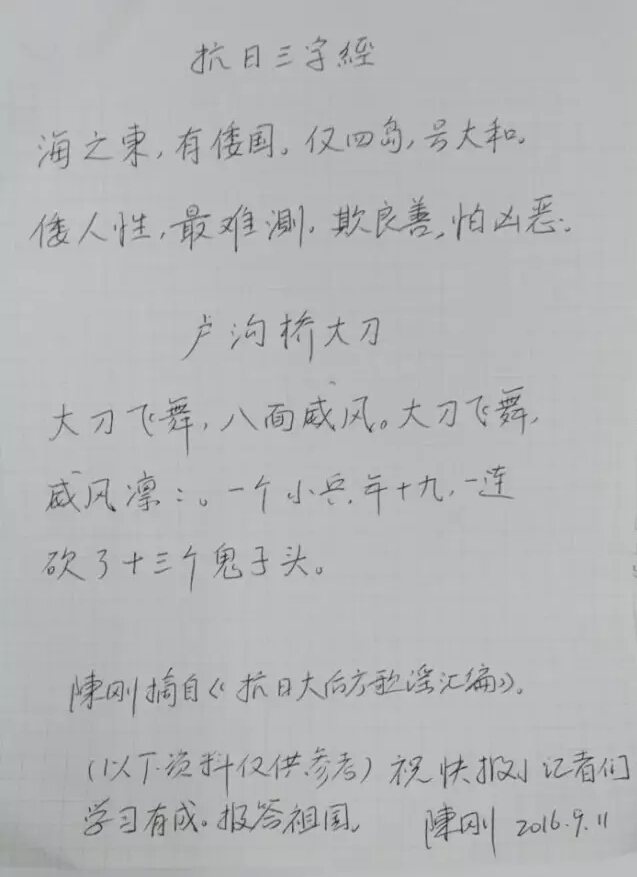 抗日三字經
海之東，有倭国。仅四岛，号大和。
倭人性，最难測。欺良善，怕凶恶。
卢沟桥大刀
大刀飞舞，八面威风。大刀飞舞，
威风凛：。一个小兵，年十九，一连
砍了十三个鬼子头。
陳刚摘自《抗日大后方歌谣汇编》。
（以下资料仅供参考）祝快报小记者们
学习有成。报答祖国。 陳刚 2016.9.11